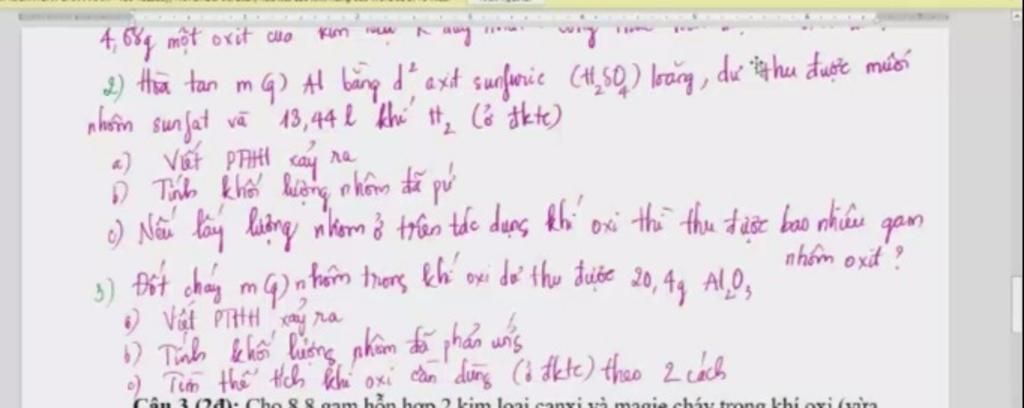 4,68g một oxit của kim
2) Hòa tan m(g) Al bằng d² axit sunfuric (H₂SO₄) loãng, dư thu được muối
nhôm sunfat và 13,44 l khí H₂ (ở đktc)
a) Viết PTHH xảy ra
b) Tính khối lượng nhôm đã pứ
c) Nếu lấy lượng nhôm ở trên tác dụng khí oxi thì thu được bao nhiêu gam
nhôm oxit?
3) Đốt cháy m(g) nhôm trong khí oxi dư thu được 20,4g Al₂O₃
a) Viết PTHH xảy ra
b) Tính khối lượng nhôm đã phản ứng
c) Tìm thể tích khí oxi cần dùng (ở đktc) theo 2 cách
Câu 3 (2đ): Cho 8,8 gam hỗn hợp 2 kim loại canxi và magie cháy trong khí oxi (vừa